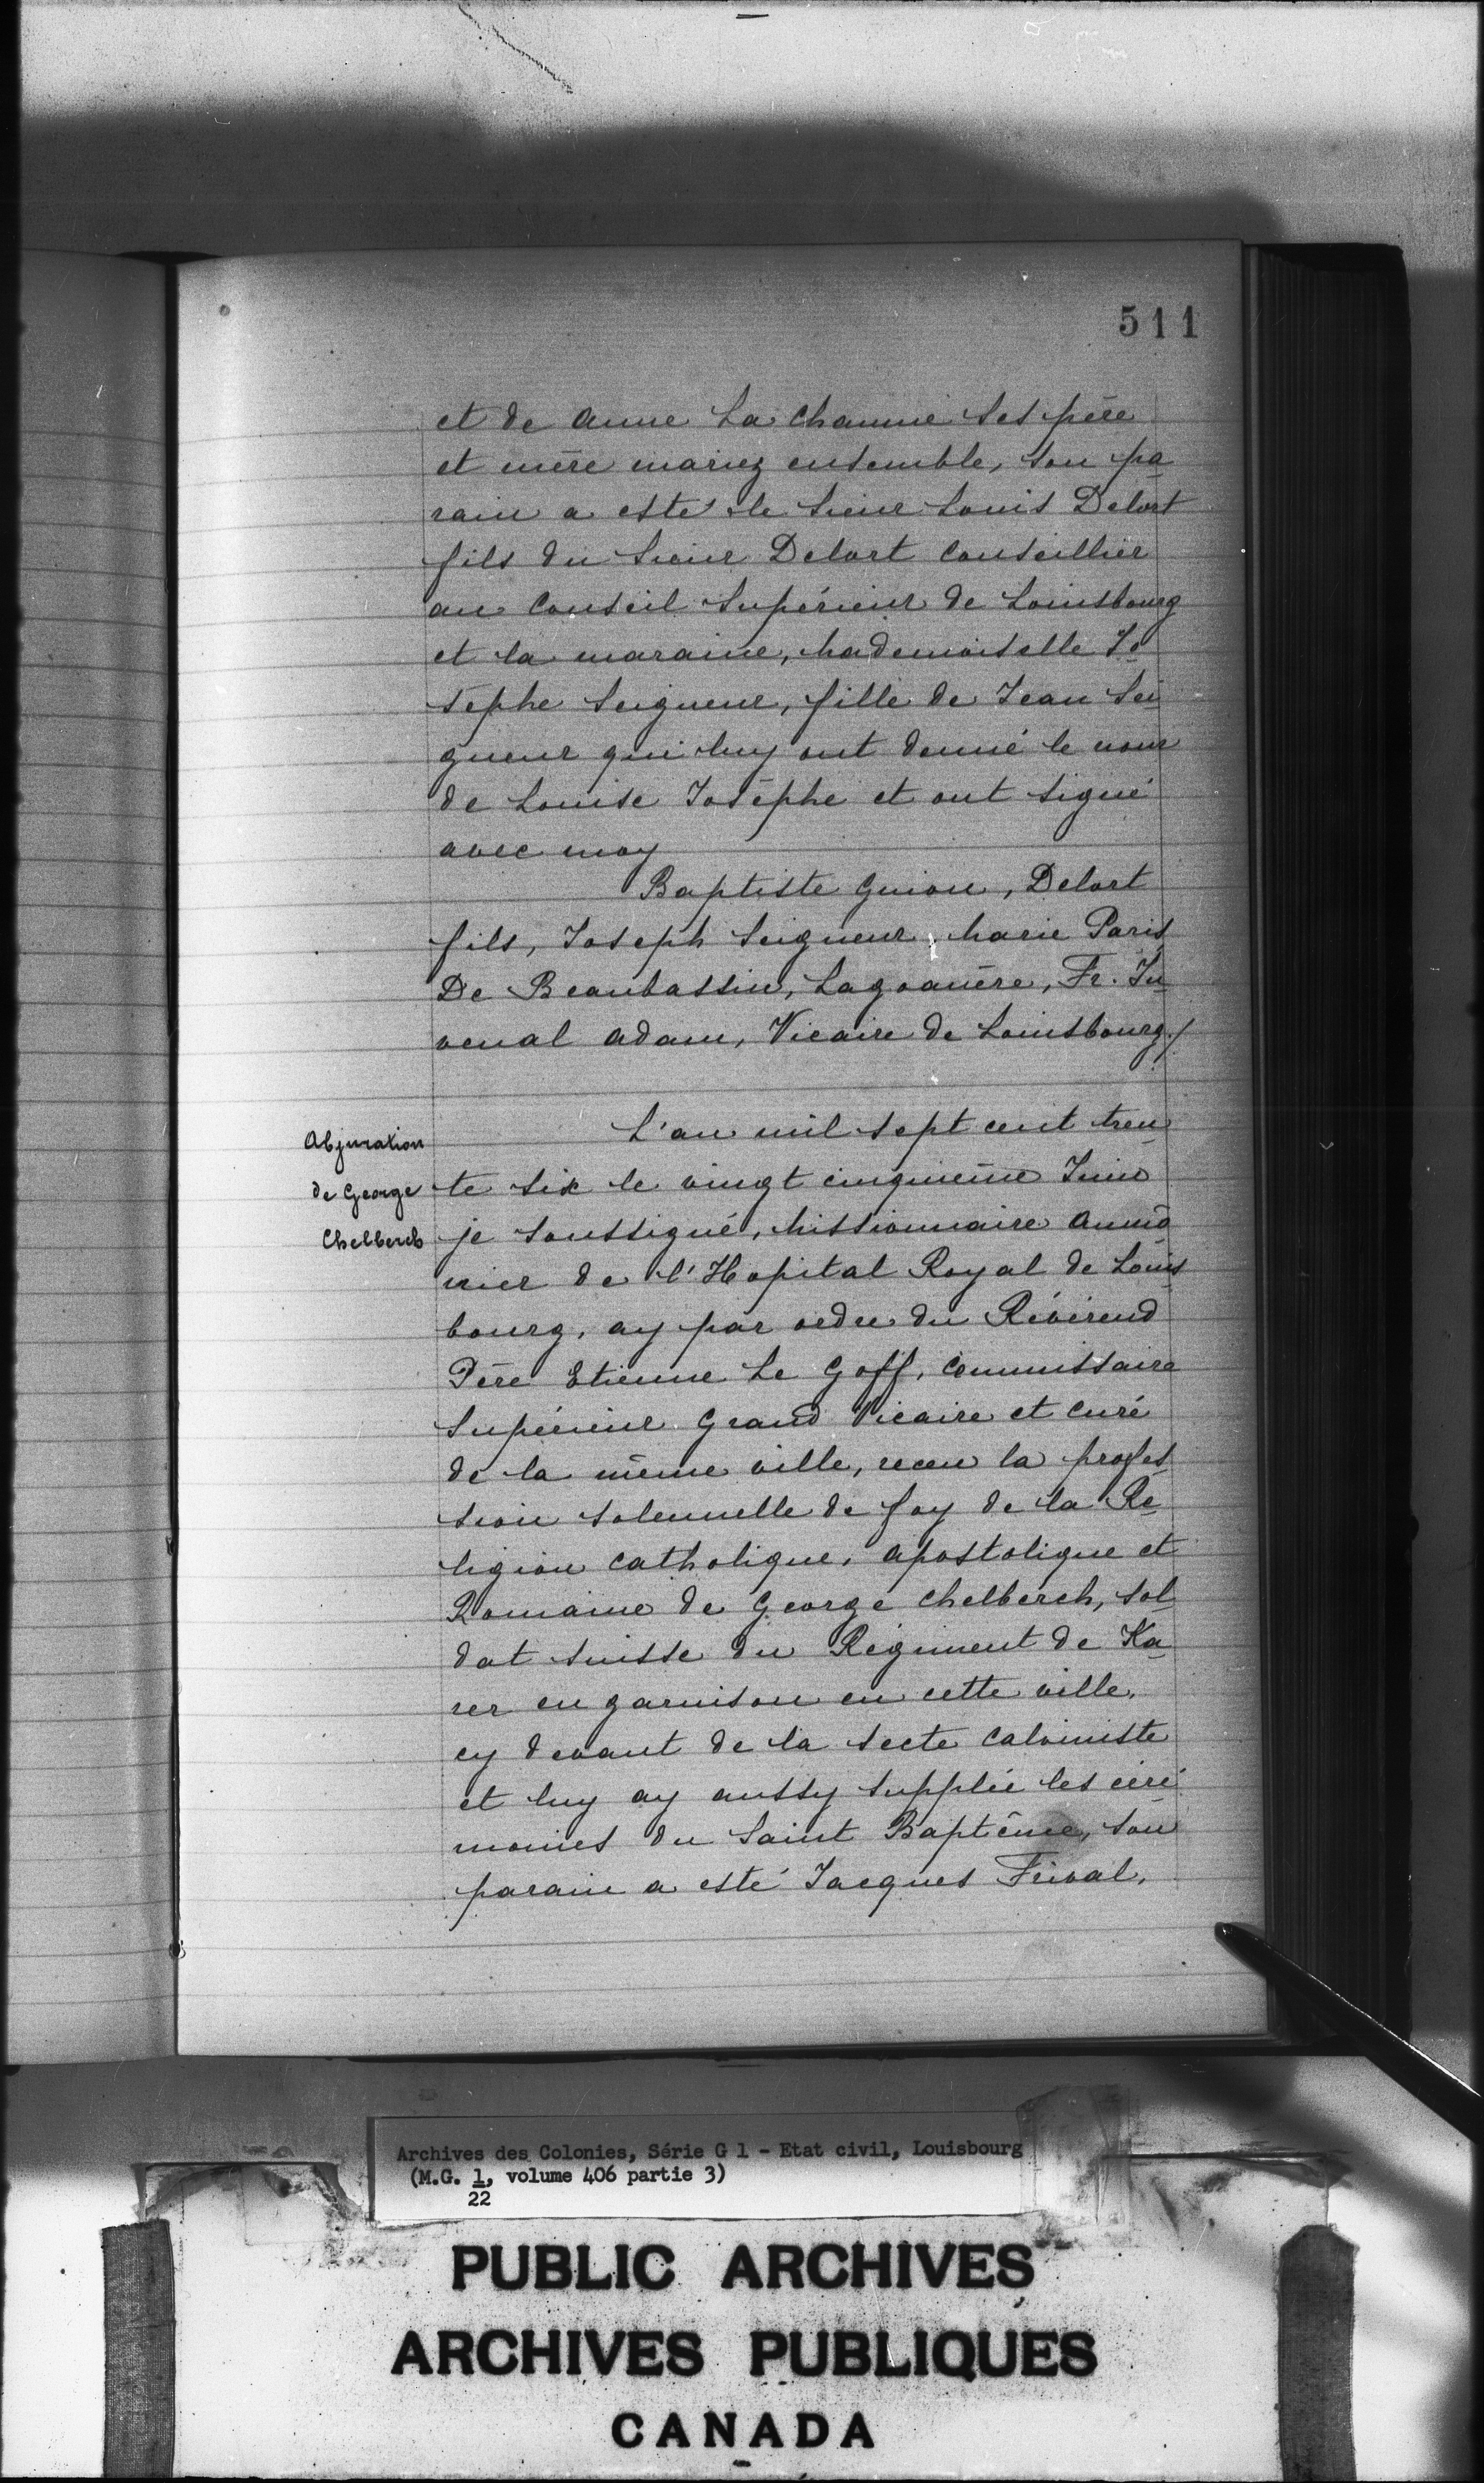 511
et de Anne La Chaume ses père
et mère mariez ensemble, son pa-
rain a esté le Sieur Louis Delort
fils du Sieur Delort Conseillier
au Conseil Supérieur de Louisbourg
et la maraine, Mademoiselle Jo-
sephe Seigneur, fille de Jean Sei
gneur qui luy ont donné le nom
de Louise Josèphe et ont signé
avec moy
Baptiste Guion, Delort
fils, Joseph Seigneur, Marie Paris
De Beaubassin, Lagoanère, Fr. Ju-
venal Adam, Vicaire de Louisbourg./
Abjuration
de George
Chelberch
L'an mil sept cent tren-
te six le vingt cinquième Juin
je soussigné, Missionnaire Aumô-
nier de l'Hopital Royal de Louis-
bourg, ay par ordre du Révérend
Père Etienne Le Goff, Commissaire
Supérieur Grand Vicaire et Curé
de la même ville, receu la profes-
sion solennelle de foy de la Re-
ligion Catholique, Apostolique et
Romaine de George Chelberch, sol-
dat suisse du Régiment de Ka-
rer en garnison en cette ville,
cy devant de la secte Calviniste
et luy ay aussy supplée les céré-
monies du Saint Baptême, son
parain a esté Jacques Frival,
Archives des Colonies, Série G 1 - Etat civil, Louisbourg
(M.G. 1, volume 406 partie 3)
22
PUBLIC ARCHIVES
ARCHIVES PUBLIQUES
CANADA